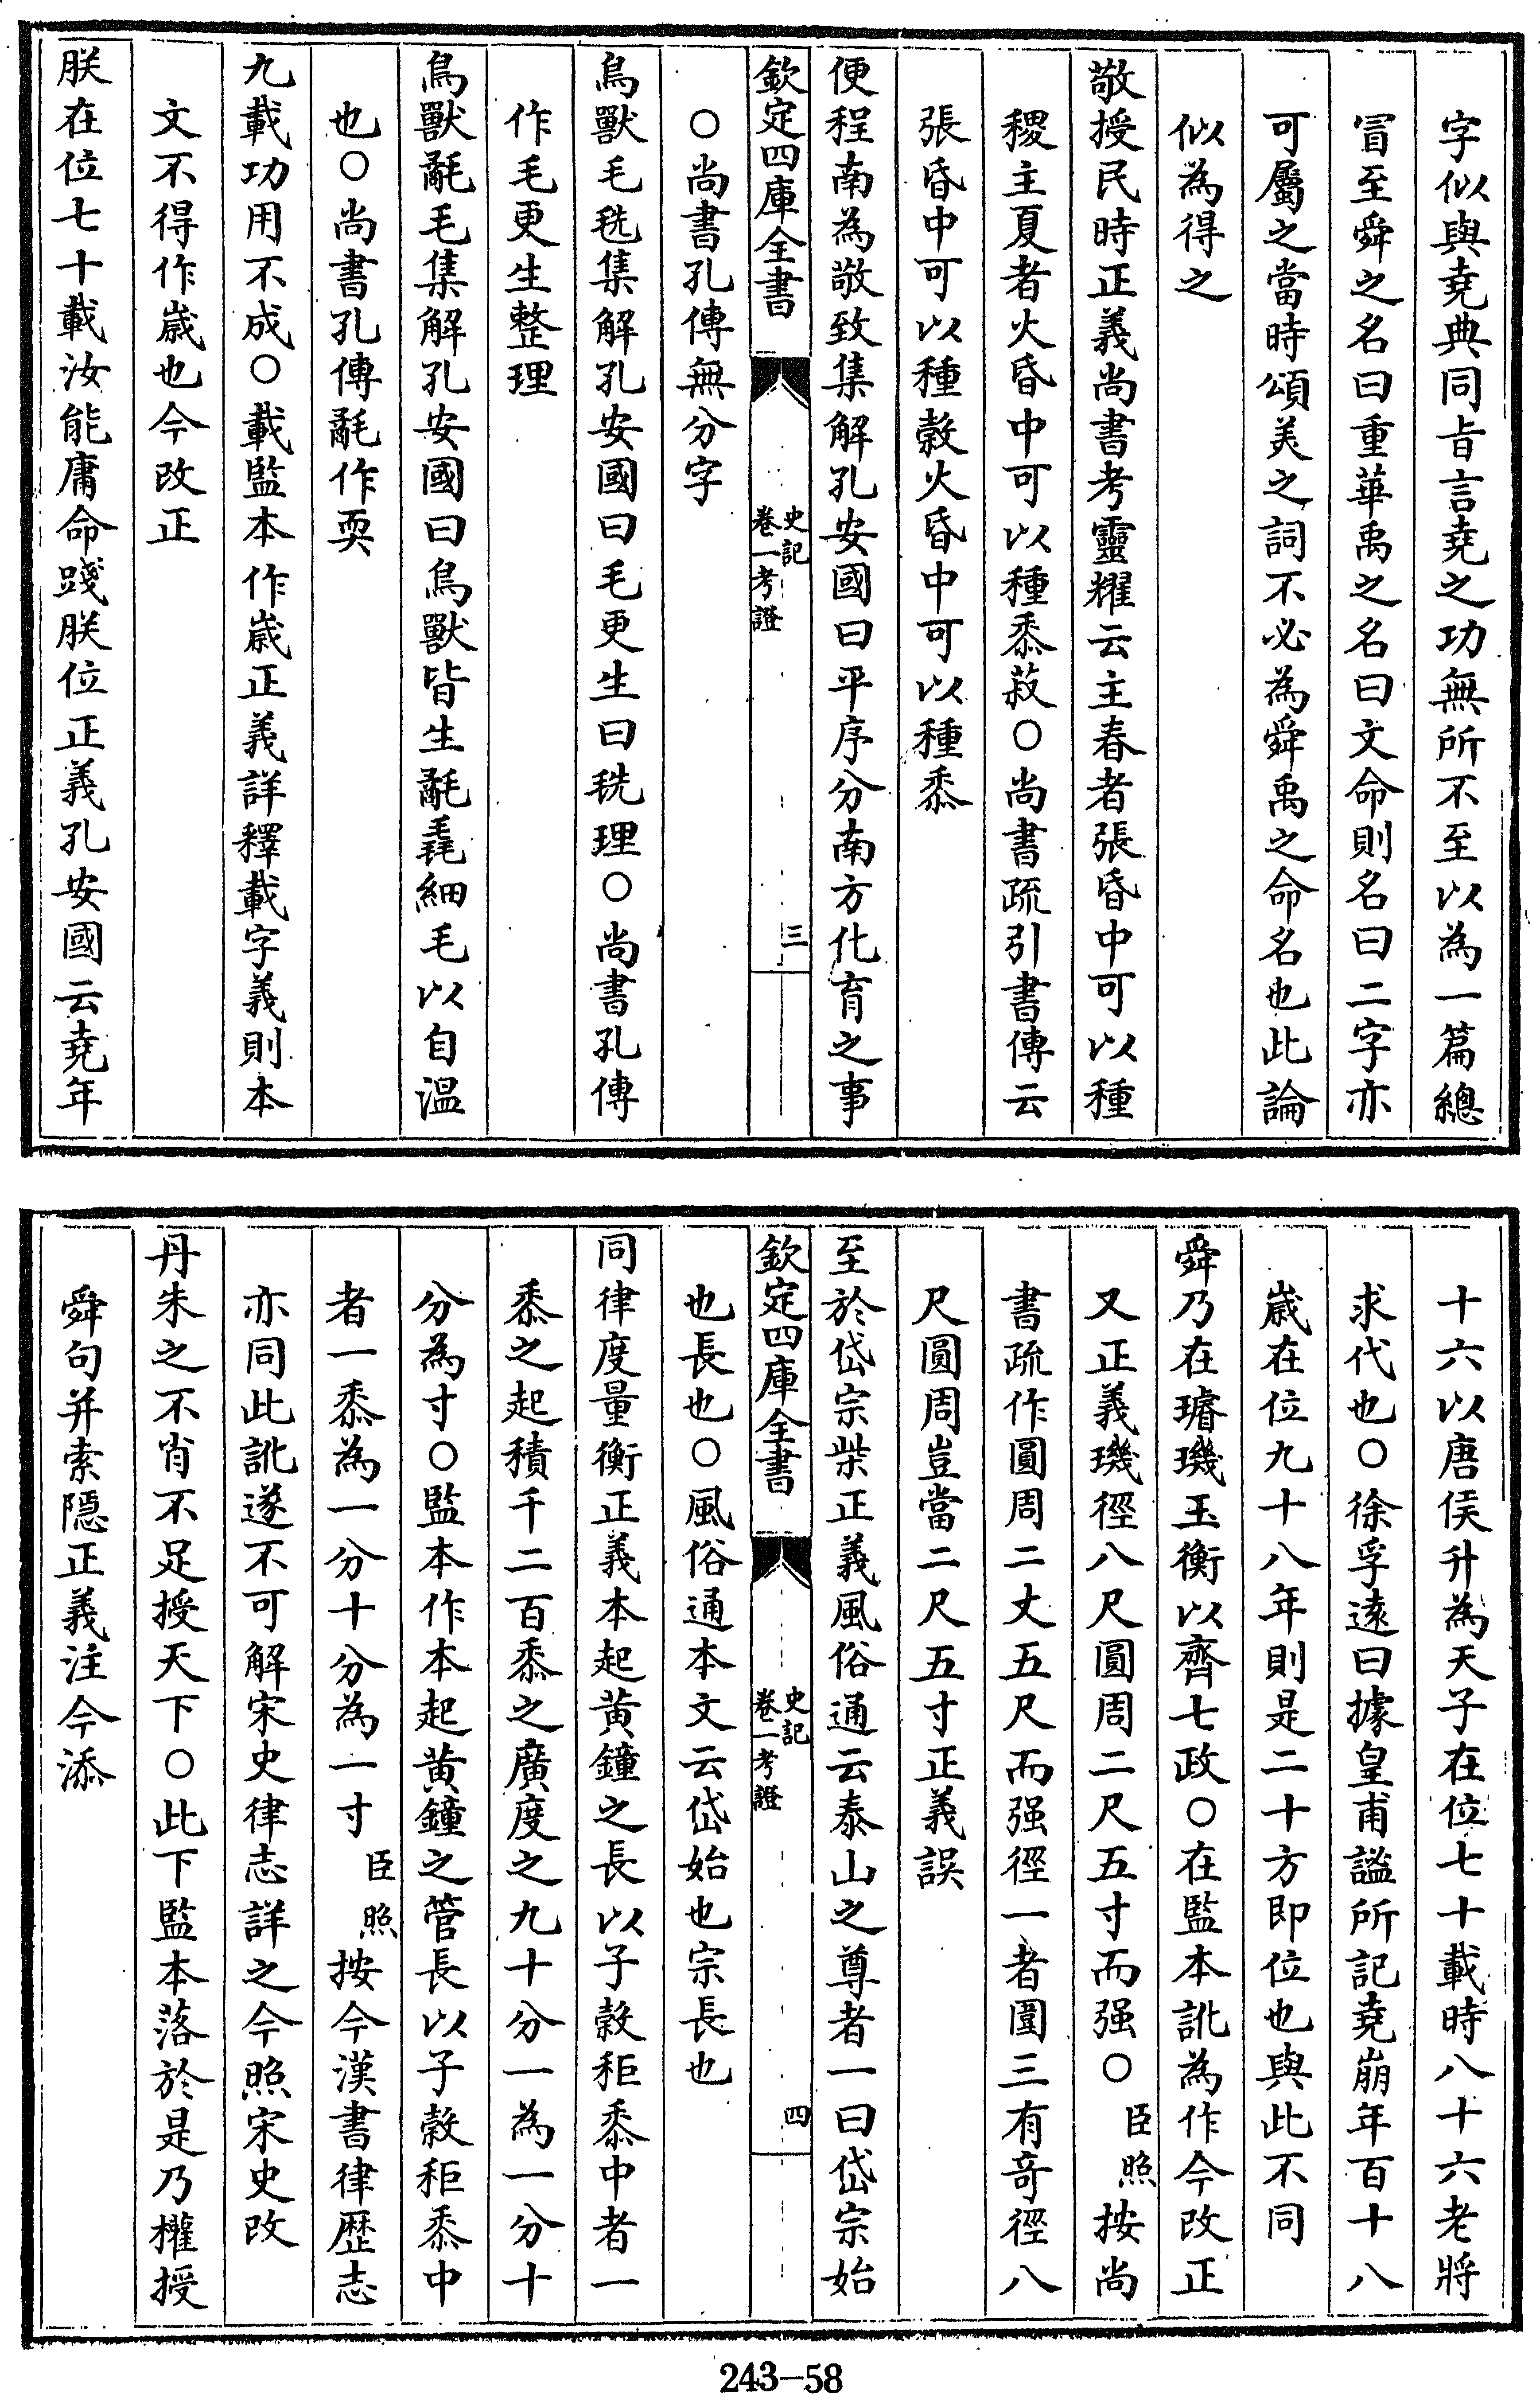 字似與堯典同㫖言堯之功無所不至以為一篇總
冒至舜之名曰重華禹之名曰文命則名曰二字亦
可屬之當時頌美之詞不必為舜禹之命名也此論
似為得之
敬授民時正義尚書考靈耀云主春者張昏中可以種
稷主夏者火昏中可以種黍菽○尚書疏引書傳云
張昏中可以種穀火昏中可以種黍
便程南為敬致集解孔安國曰平序分南方化育之事
欽定四庫全書
史記
卷一考證
三
○尚書孔傳無分字
鳥獸毛毨集解孔安國曰毛更生曰毨理○尚書孔傳
作毛更生整理
鳥獸氄毛集解孔安國曰鳥獸皆生氄毳細毛以自温
也○尚書孔傳氄作耎
九載功用不成○載監本作嵗正義詳釋載字義則本
文不得作嵗也今改正
朕在位七十載汝能庸命踐朕位正義孔安國云堯年
十六以唐侯升為天子在位七十載時八十六老將
求代也○徐孚遠曰據皇甫謐所記堯崩年百十八
嵗在位九十八年則是二十方即位也與此不同
舜乃在璿璣玉衡以齊七政○在監本訛為作今改正
又正義璣徑八尺圓周二尺五寸而强○臣照按尚
書疏作圓周二丈五尺而强徑一者圍三有竒徑八
尺圓周豈當二尺五寸正義誤
至於岱宗柴正義風俗通云泰山之尊者一曰岱宗始
欽定四庫全書
史記
卷一考證
四
也長也○風俗通本文云岱始也宗長也
同律度量衡正義本起黄鐘之長以子穀秬黍中者一
黍之起積千二百黍之廣度之九十分一為一分十
分為寸○監本作本起黄鐘之管長以子穀秬黍中
者一黍為一分十分為一寸臣照按今漢書律歴志
亦同此訛遂不可解宋史律志詳之今照宋史改
丹朱之不肖不足授天下○此下監本落於是乃權授
舜句并索隠正義注今添
243-58